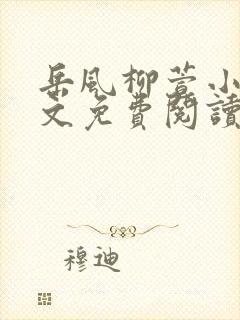 岳風柳萱小
文免費閱讀
穆迪